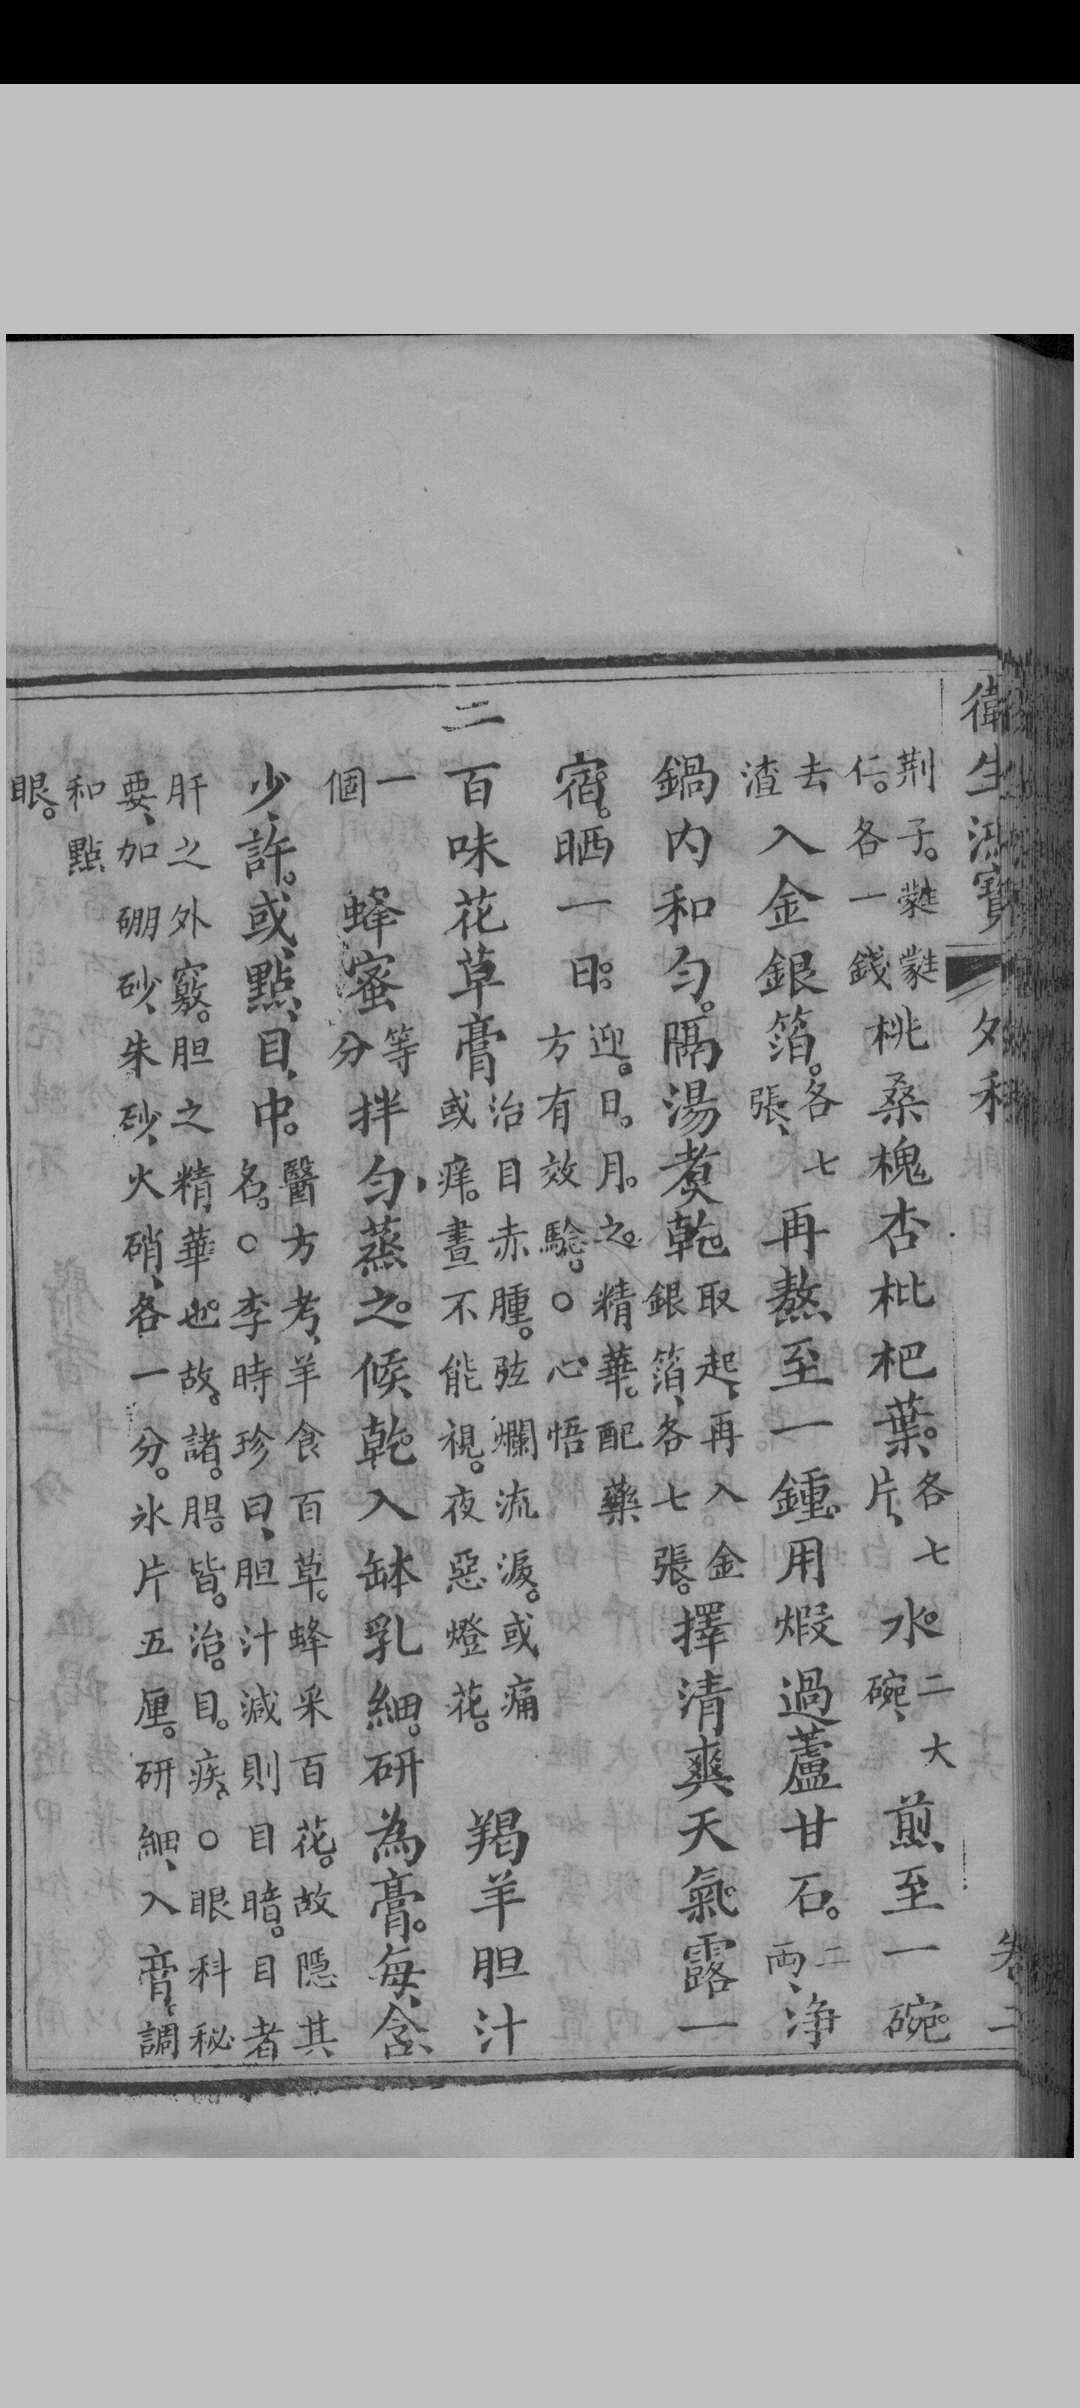 衛生鴻寶 外科 卷二
荆子。蕤仁。各一錢 桃桑槐杏枇杷葉。各七片、水。二大碗、煎至一碗。
去渣入金銀箔。各七張、再熬至一鍾。用煅過蘆甘石。二兩、净
鍋内和勻。隔湯煮乾。取起、再入金銀箔、各七張。擇清爽天氣。露一
宿。晒一日。迎。日。月。之。精華。配藥方有效驗。○心悟
二百味花草膏 治目赤腫。弦爛流淚。或痛或痒。晝不能視。夜惡燈花。 羯羊胆汁
一個 蜂蜜等分 拌勻、蒸之。候乾。入缽乳細。研為膏。每、含、
少、許。或、點、目、中。醫方考、羊食百草。蜂采百花。故隱其名。○李時珍曰、胆汁減則目暗。目者
肝之外竅。胆之精華也。故。諸。胆。皆。治。目。疾。○眼科秘要、加硼砂、朱砂、火硝、各一分。氷片五厘。研細、入膏、調
和點眼。